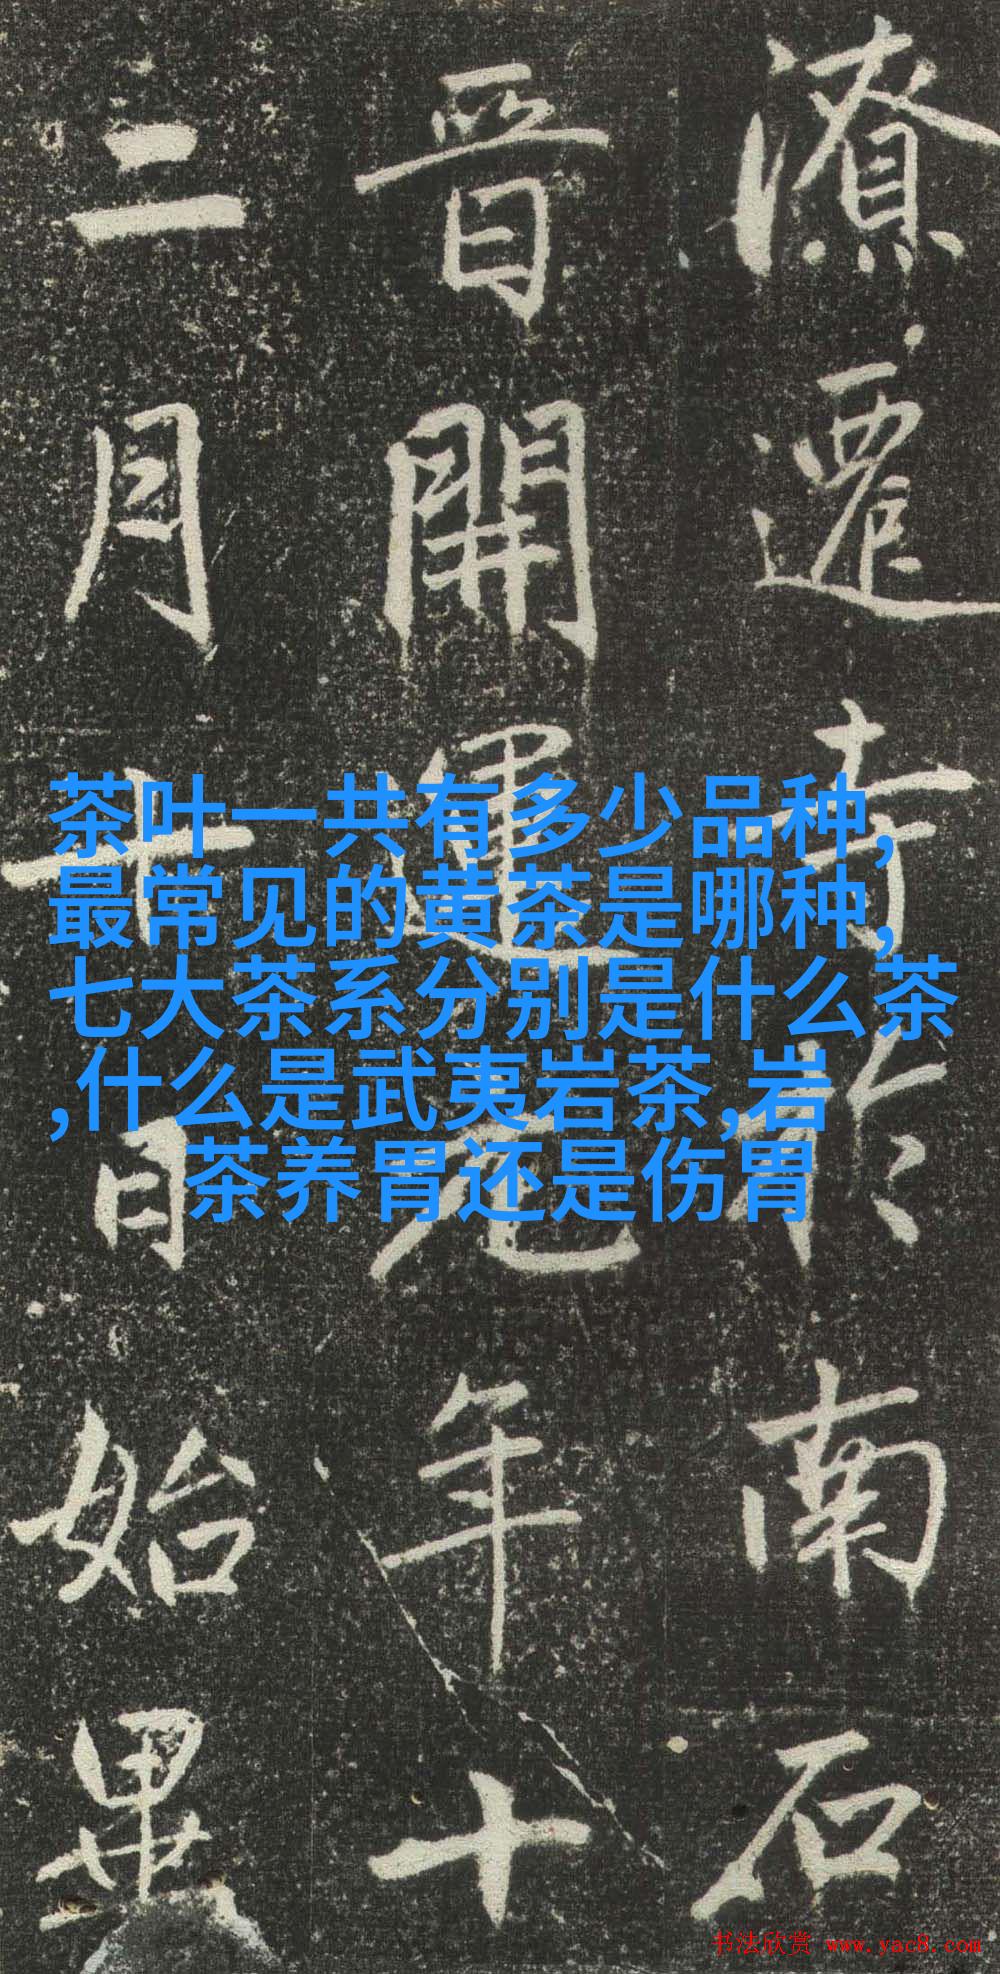 潦遷寺於南石
晉開運元年十
二月十日始畢
茶叶一共有多少品种,
最常见的黄茶是哪种,
七大茶系分别是什么茶
,什么是武夷岩茶,岩
茶养胃还是伤胃
书法欣赏 www.yac8.com